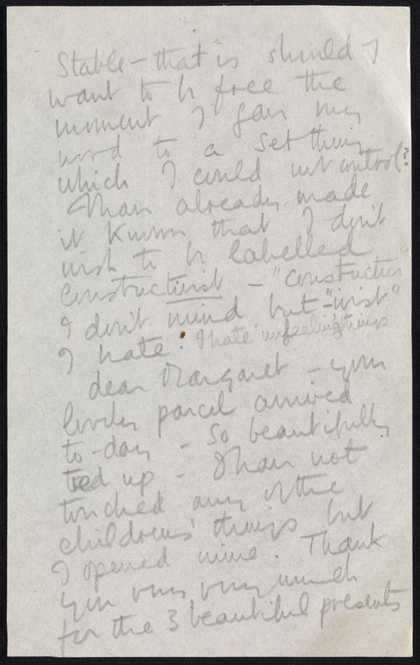 Stable – that is should I
want to be free the
moment I gave my
word to a set thing
which I could not control?
I have already made
it known that I don't
wish to be labelled
Constructivist – "Construction"
I don't mind but "ivist"
I hate. I hate unfeeling things
dear Margaret – your
lovely parcel arrived
to-day – So beautifully
tied up – I have not
touched any of the
childrens' things but
I opened mine. Thank
you very very much
for the 3 beautiful presents